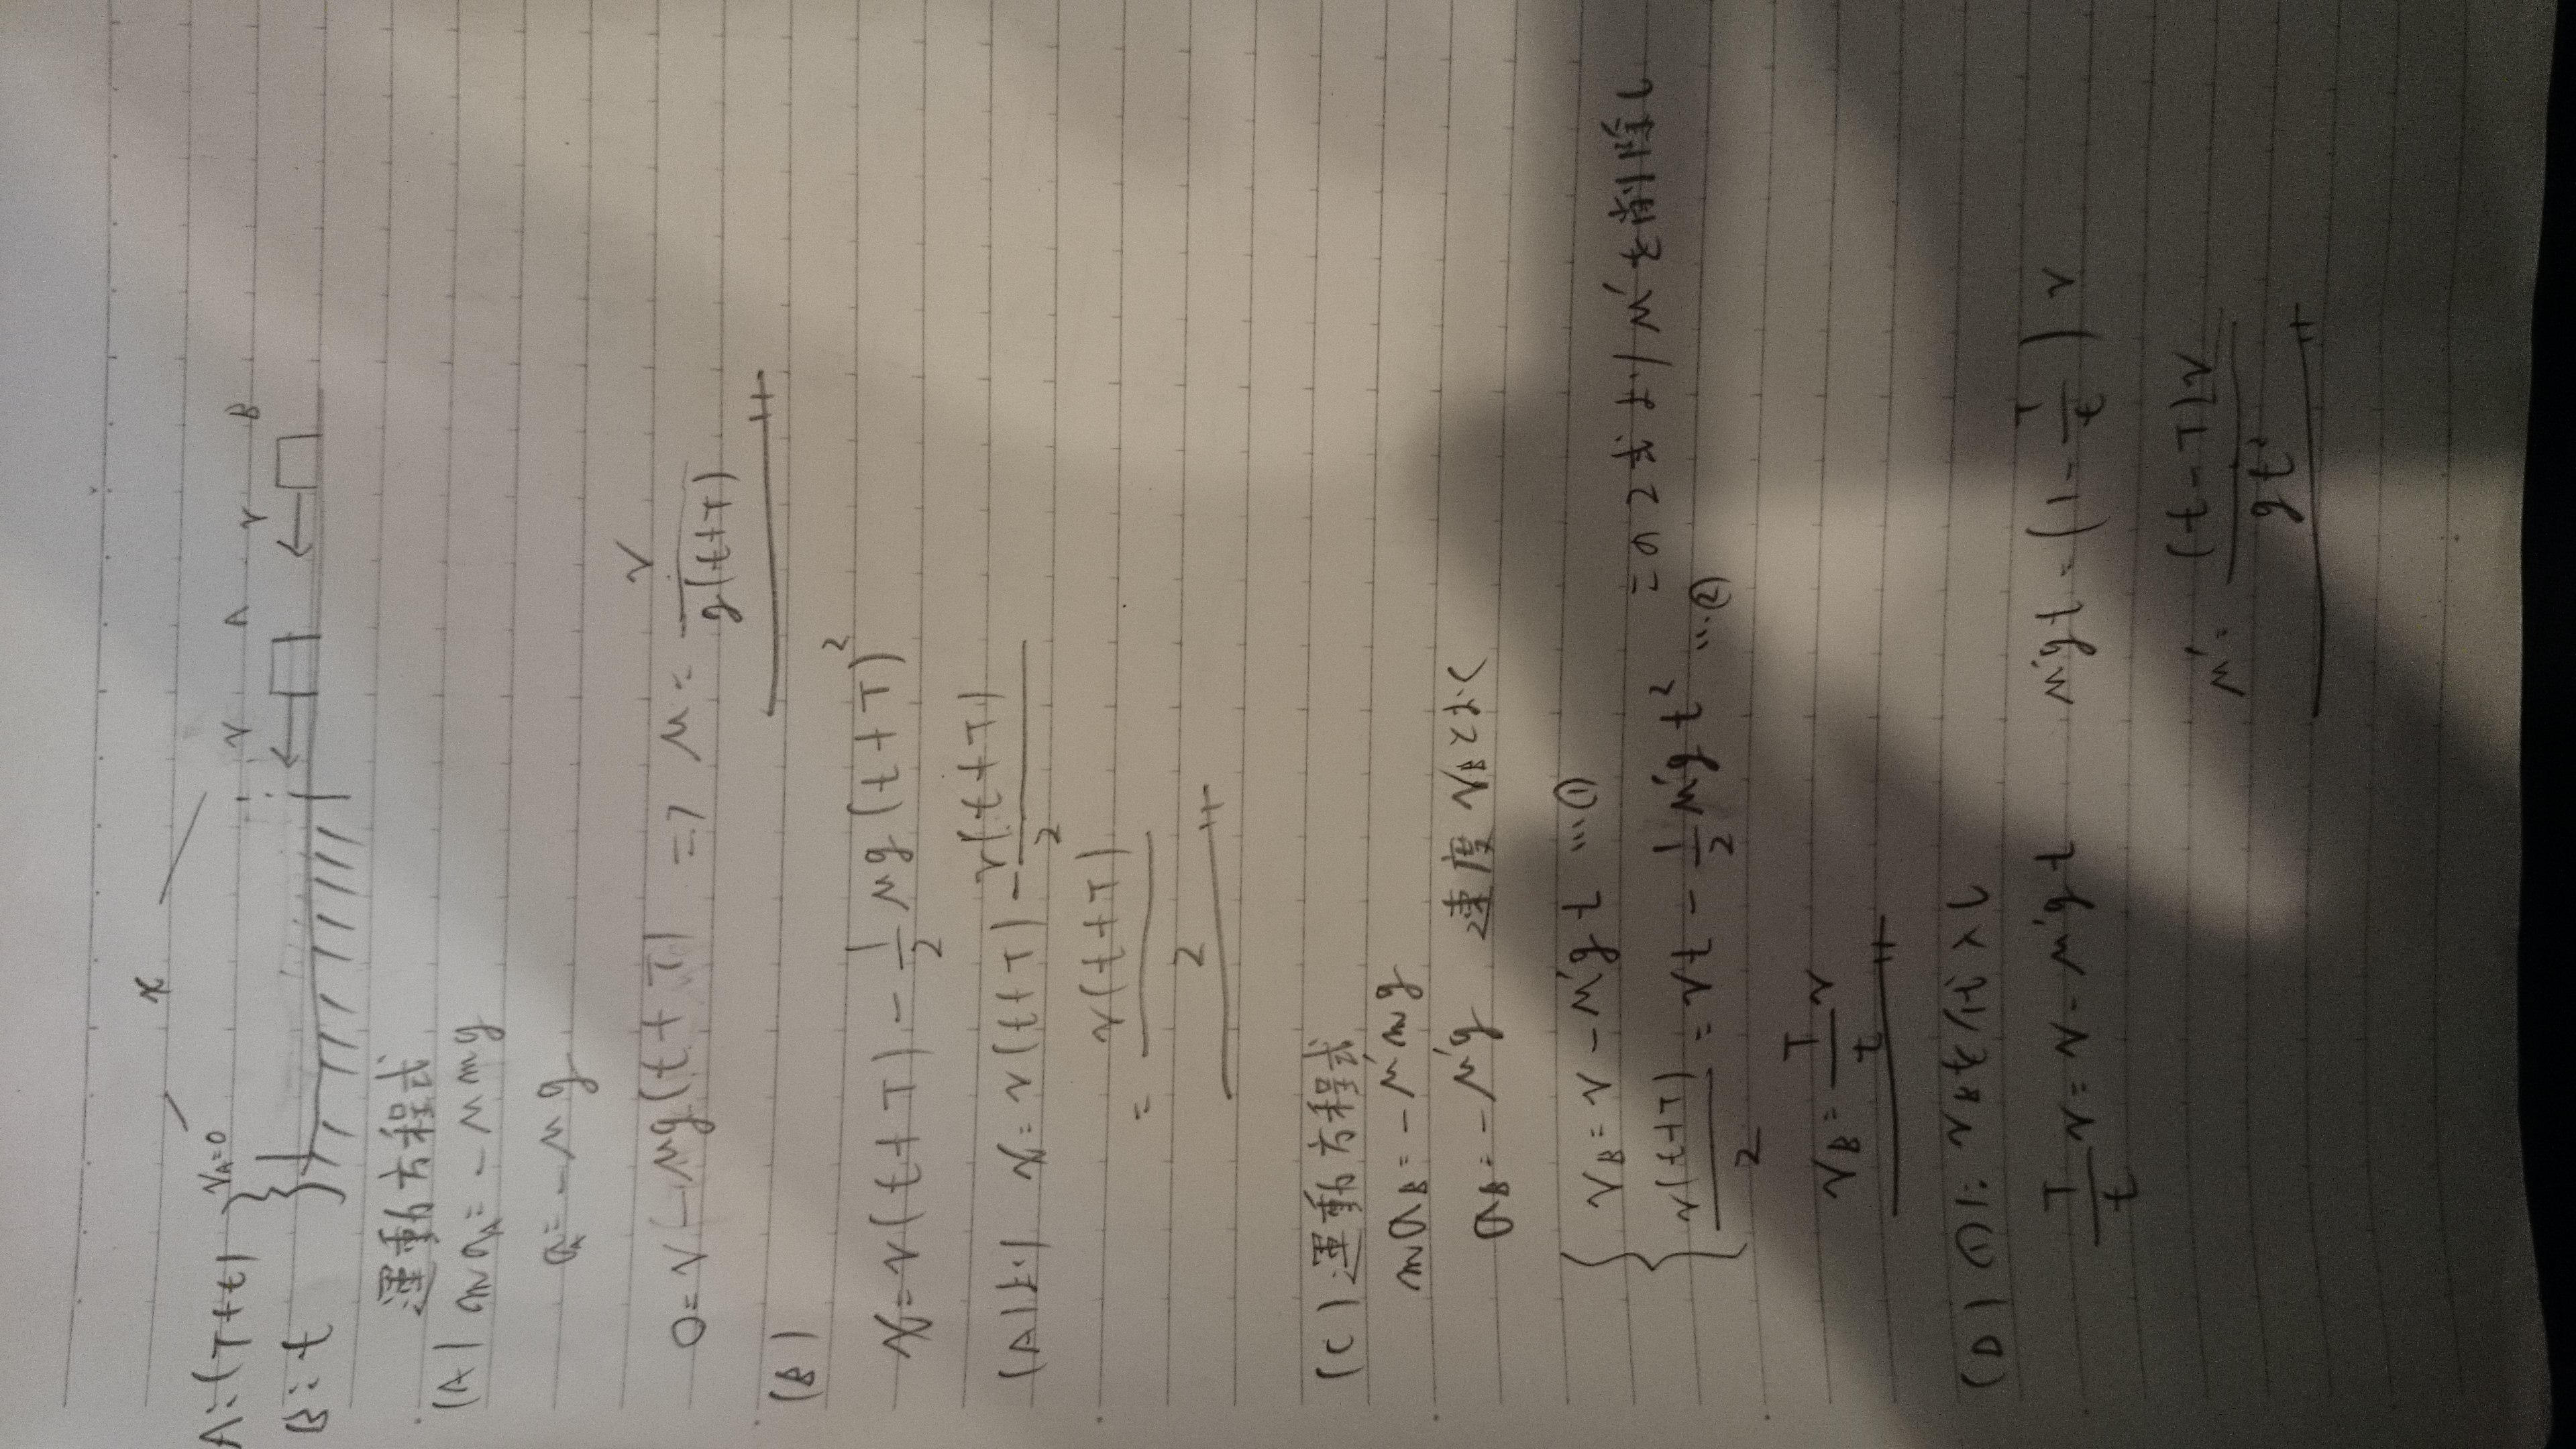 A:(T+t)
B:t
v_A=0
x
v A v B
運動方程式
(A) ma_A=-μmg
a_A=-μg
0=v-μg(t+T) => μ=v/g(t+T)
(B)
x=v(t+T)-1/2μg(t+T)²
(A)より x=v(t+T)-v(t+T)/2
=v(t+T)/2
(C)運動方程式
ma_B=-μ'mg
a_B=-μ'g 速度v_Bとおく
v_B=v-μ'gt …①
v(t+T)/2=vt-1/2μ'gt² …②
この2式よりμ'を削除し
v_B=T/t v
(D)①にv_Bを代入し
T/t v=v-μ'gt μ'gt=(1-T/t)v
μ'=(t-T)v/gt²